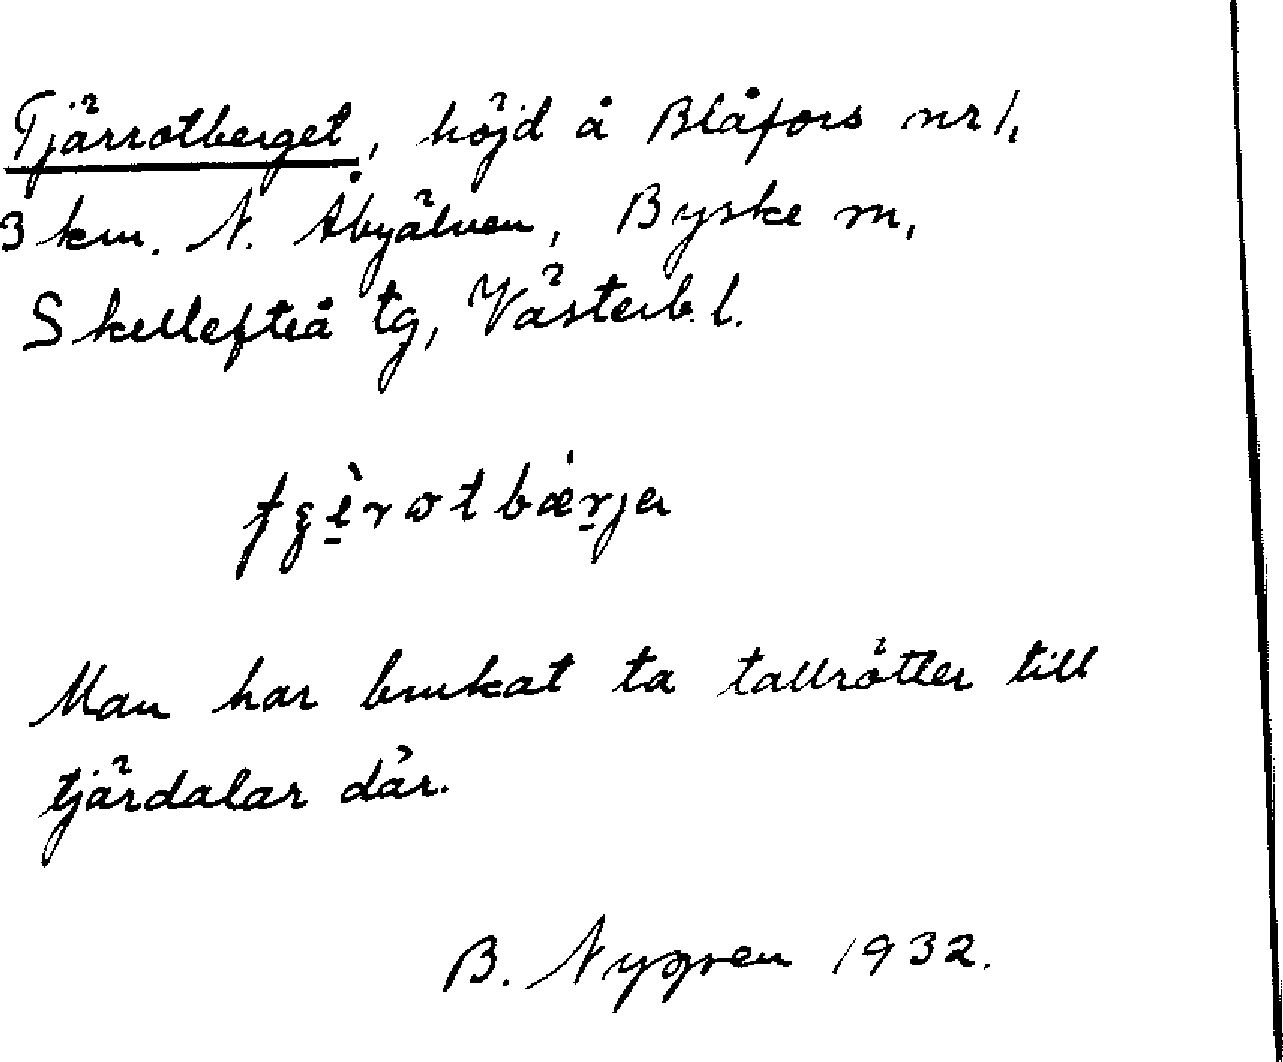 Tjärrotberget, höjd å Blåfors nr 1,
3 km. N. Åbyälven, Byske sn,
Skellefteå tg, Västerb. l.
Man har brukat ta tallrötter till
tjärdalar där.
B. Nygren 1932.